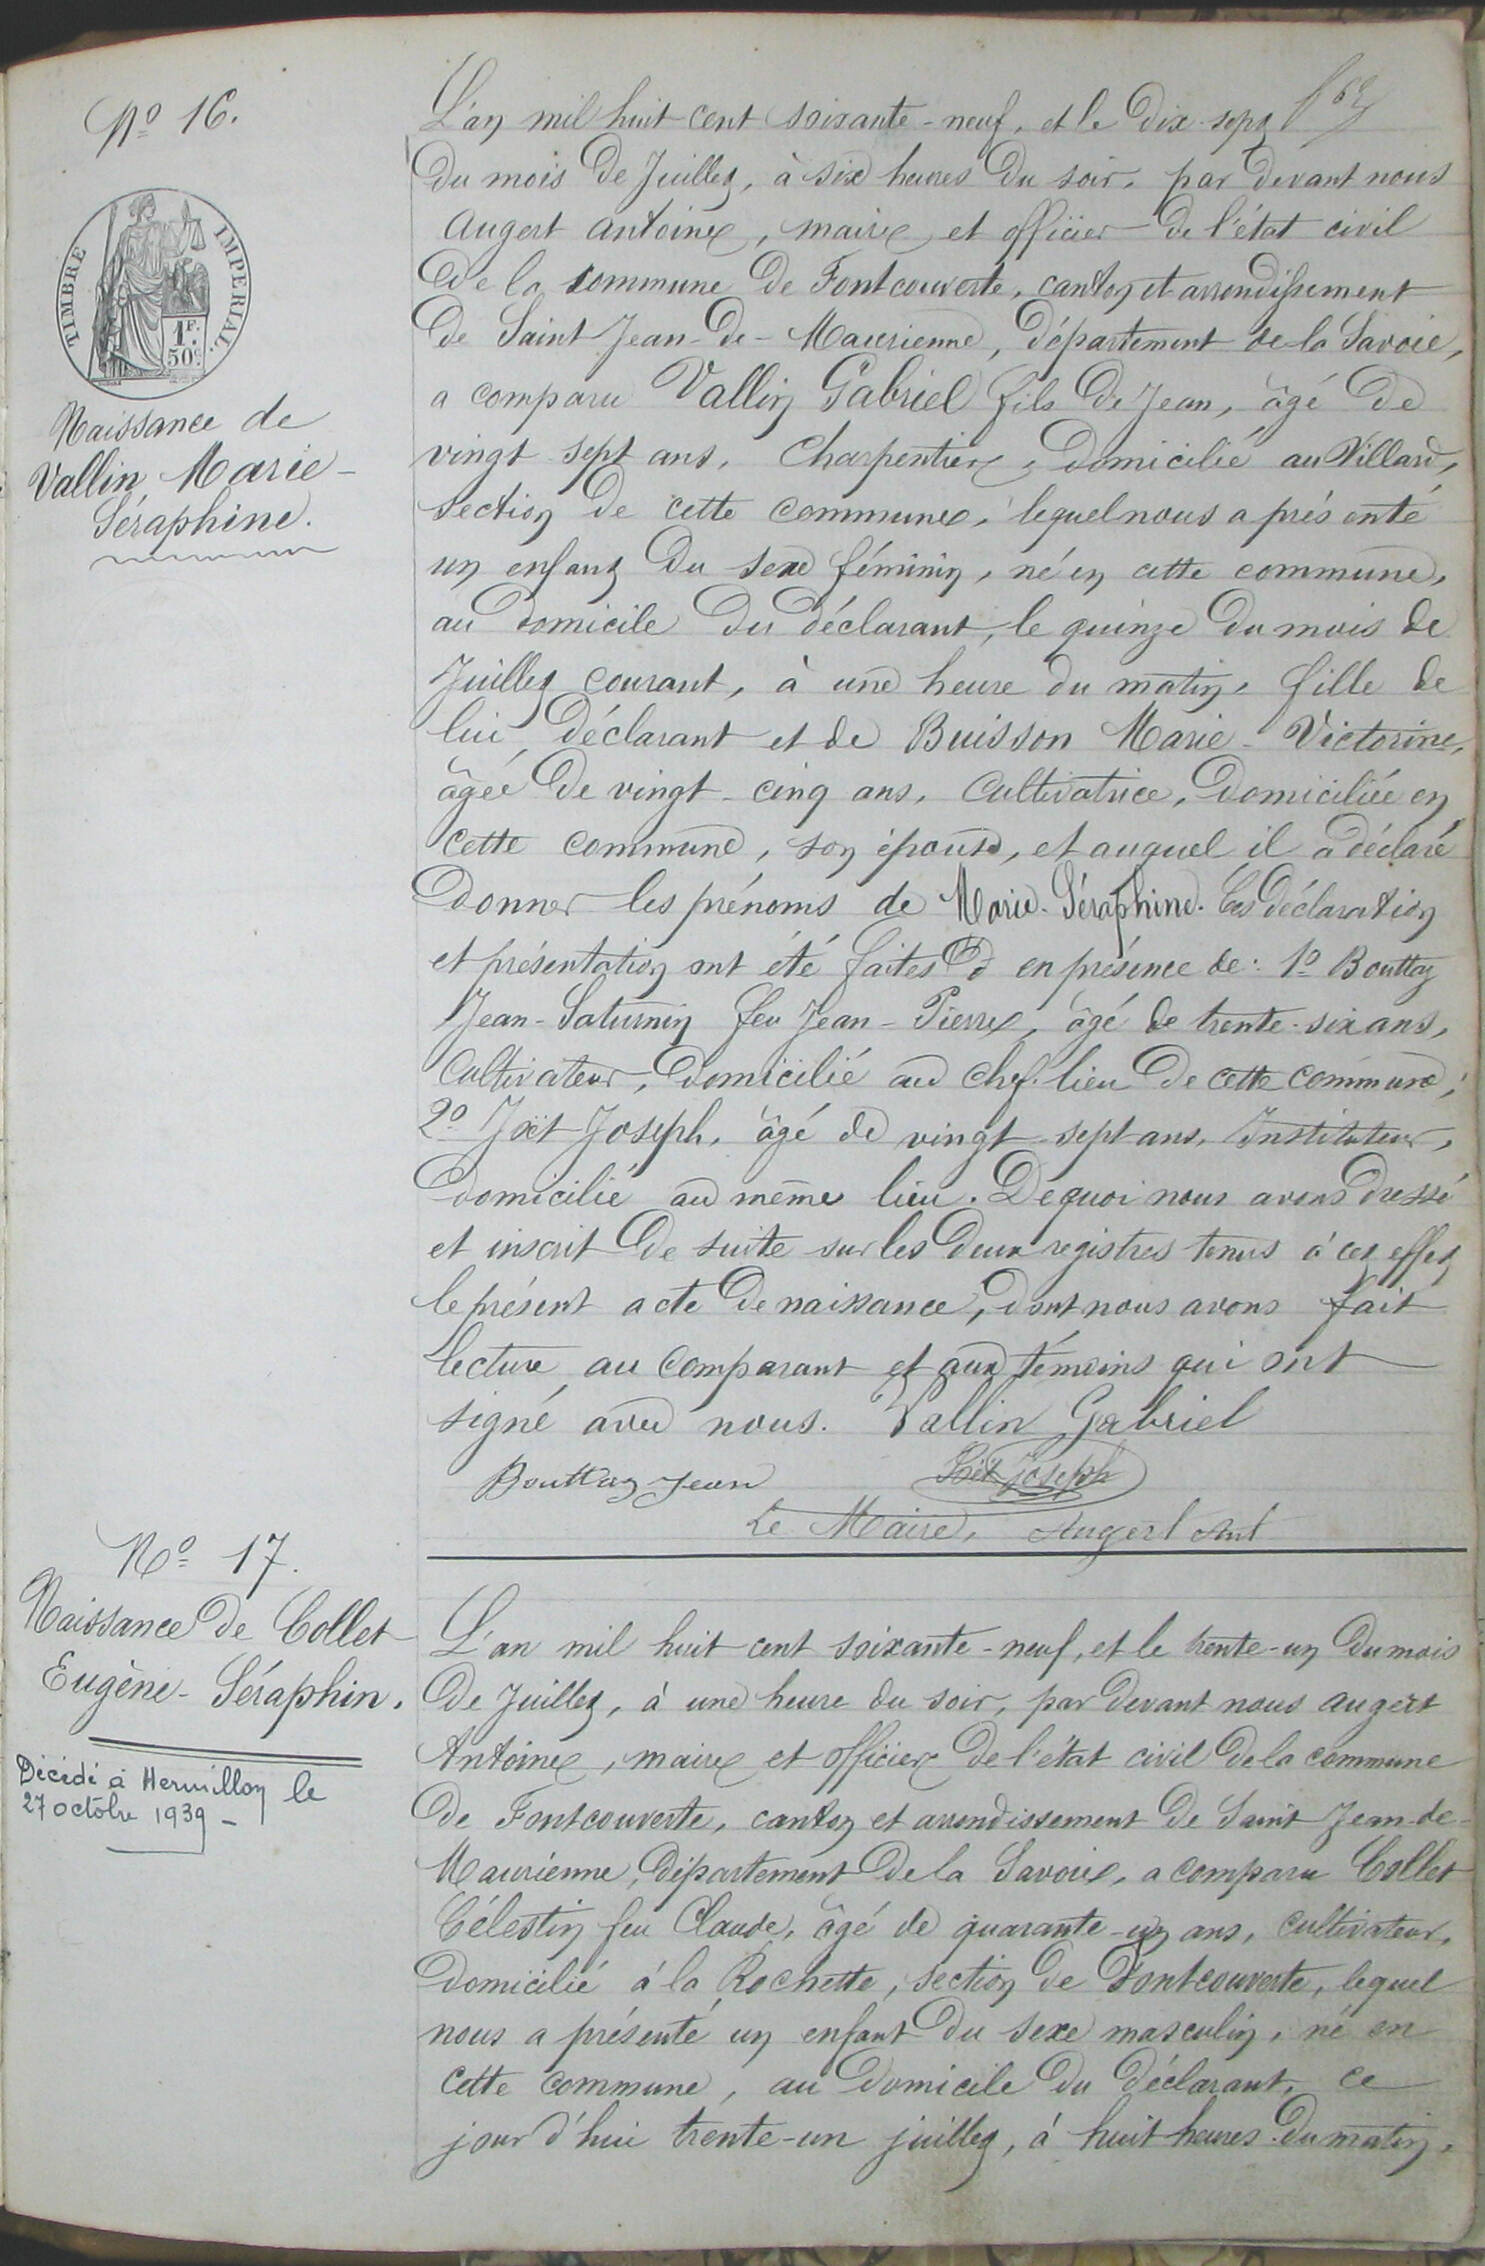 Nº 16.
TIMBRE IMPERIAL.
1F.
50c.
Naissance de
Vallin Marie-
Séraphine.
L'an mil huit cent soixante-neuf, et le dix-sept
du mois de Juillet, à six heures du soir, par devant nous
Augert Antoine, maire et officier de l'état civil
de la commune de Fontcouverte, canton et arrondissement
de Saint Jean-de-Maurienne, département de la Savoie,
a comparu Vallin Gabriel fils de Jean, âgé de
vingt sept ans, Charpentier, domicilié au Villard,
section de cette commune, lequel nous a présenté
un enfant du sexe féminin, né en cette commune,
au domicile du déclarant, le quinze du mois de
Juillet courant, à une heure du matin, fille de
lui déclarant et de Buisson Marie-Victorine,
âgée de vingt-cinq ans, Cultivatrice, domiciliée en
cette commune, son épouse, et auquel il a déclaré
donner les prénoms de Marie-Séraphine. Ces déclaration
et présentation ont été faites en présence de: 1º Bouttaz
Jean-Saturnin feu Jean-Pierre, âgé de trente-six ans,
Cultivateur, domicilié au chef-lieu de cette commune;
2º Joseph, âgé de vingt-sept ans, Instituteur,
domicilié au même lieu. De quoi nous avons dressé
et inscrit de suite sur les deux registres tenus à cet effet
le présent acte de naissance, dont nous avons fait
lecture au comparant et aux témoins qui ont
signé avec nous. Vallin Gabriel
Bouttaz Jean Joseph
Le Maire, Augert Ant
Nº 17.
Naissance de Collet
Eugène-Séraphin.
Décédé à Hermillon le
27 octobre 1939 -
L'an mil huit cent soixante-neuf, et le trente-un du mois
de Juillet, à une heure du soir, par devant nous Augert
Antoine, maire et officier de l'état civil de la commune
de Fontcouverte, canton et arrondissement de Saint Jean-de-
Maurienne, département de la Savoie, a comparu Collet
Célestin feu Claude, âgé de quarante-un ans, cultivateur,
domicilié à la Rochette, section de Fontcouverte, lequel
nous a présenté un enfant du sexe masculin, né en
cette commune, au domicile du déclarant, ce
jour d'hui trente-un juillet, à huit heures du matin,